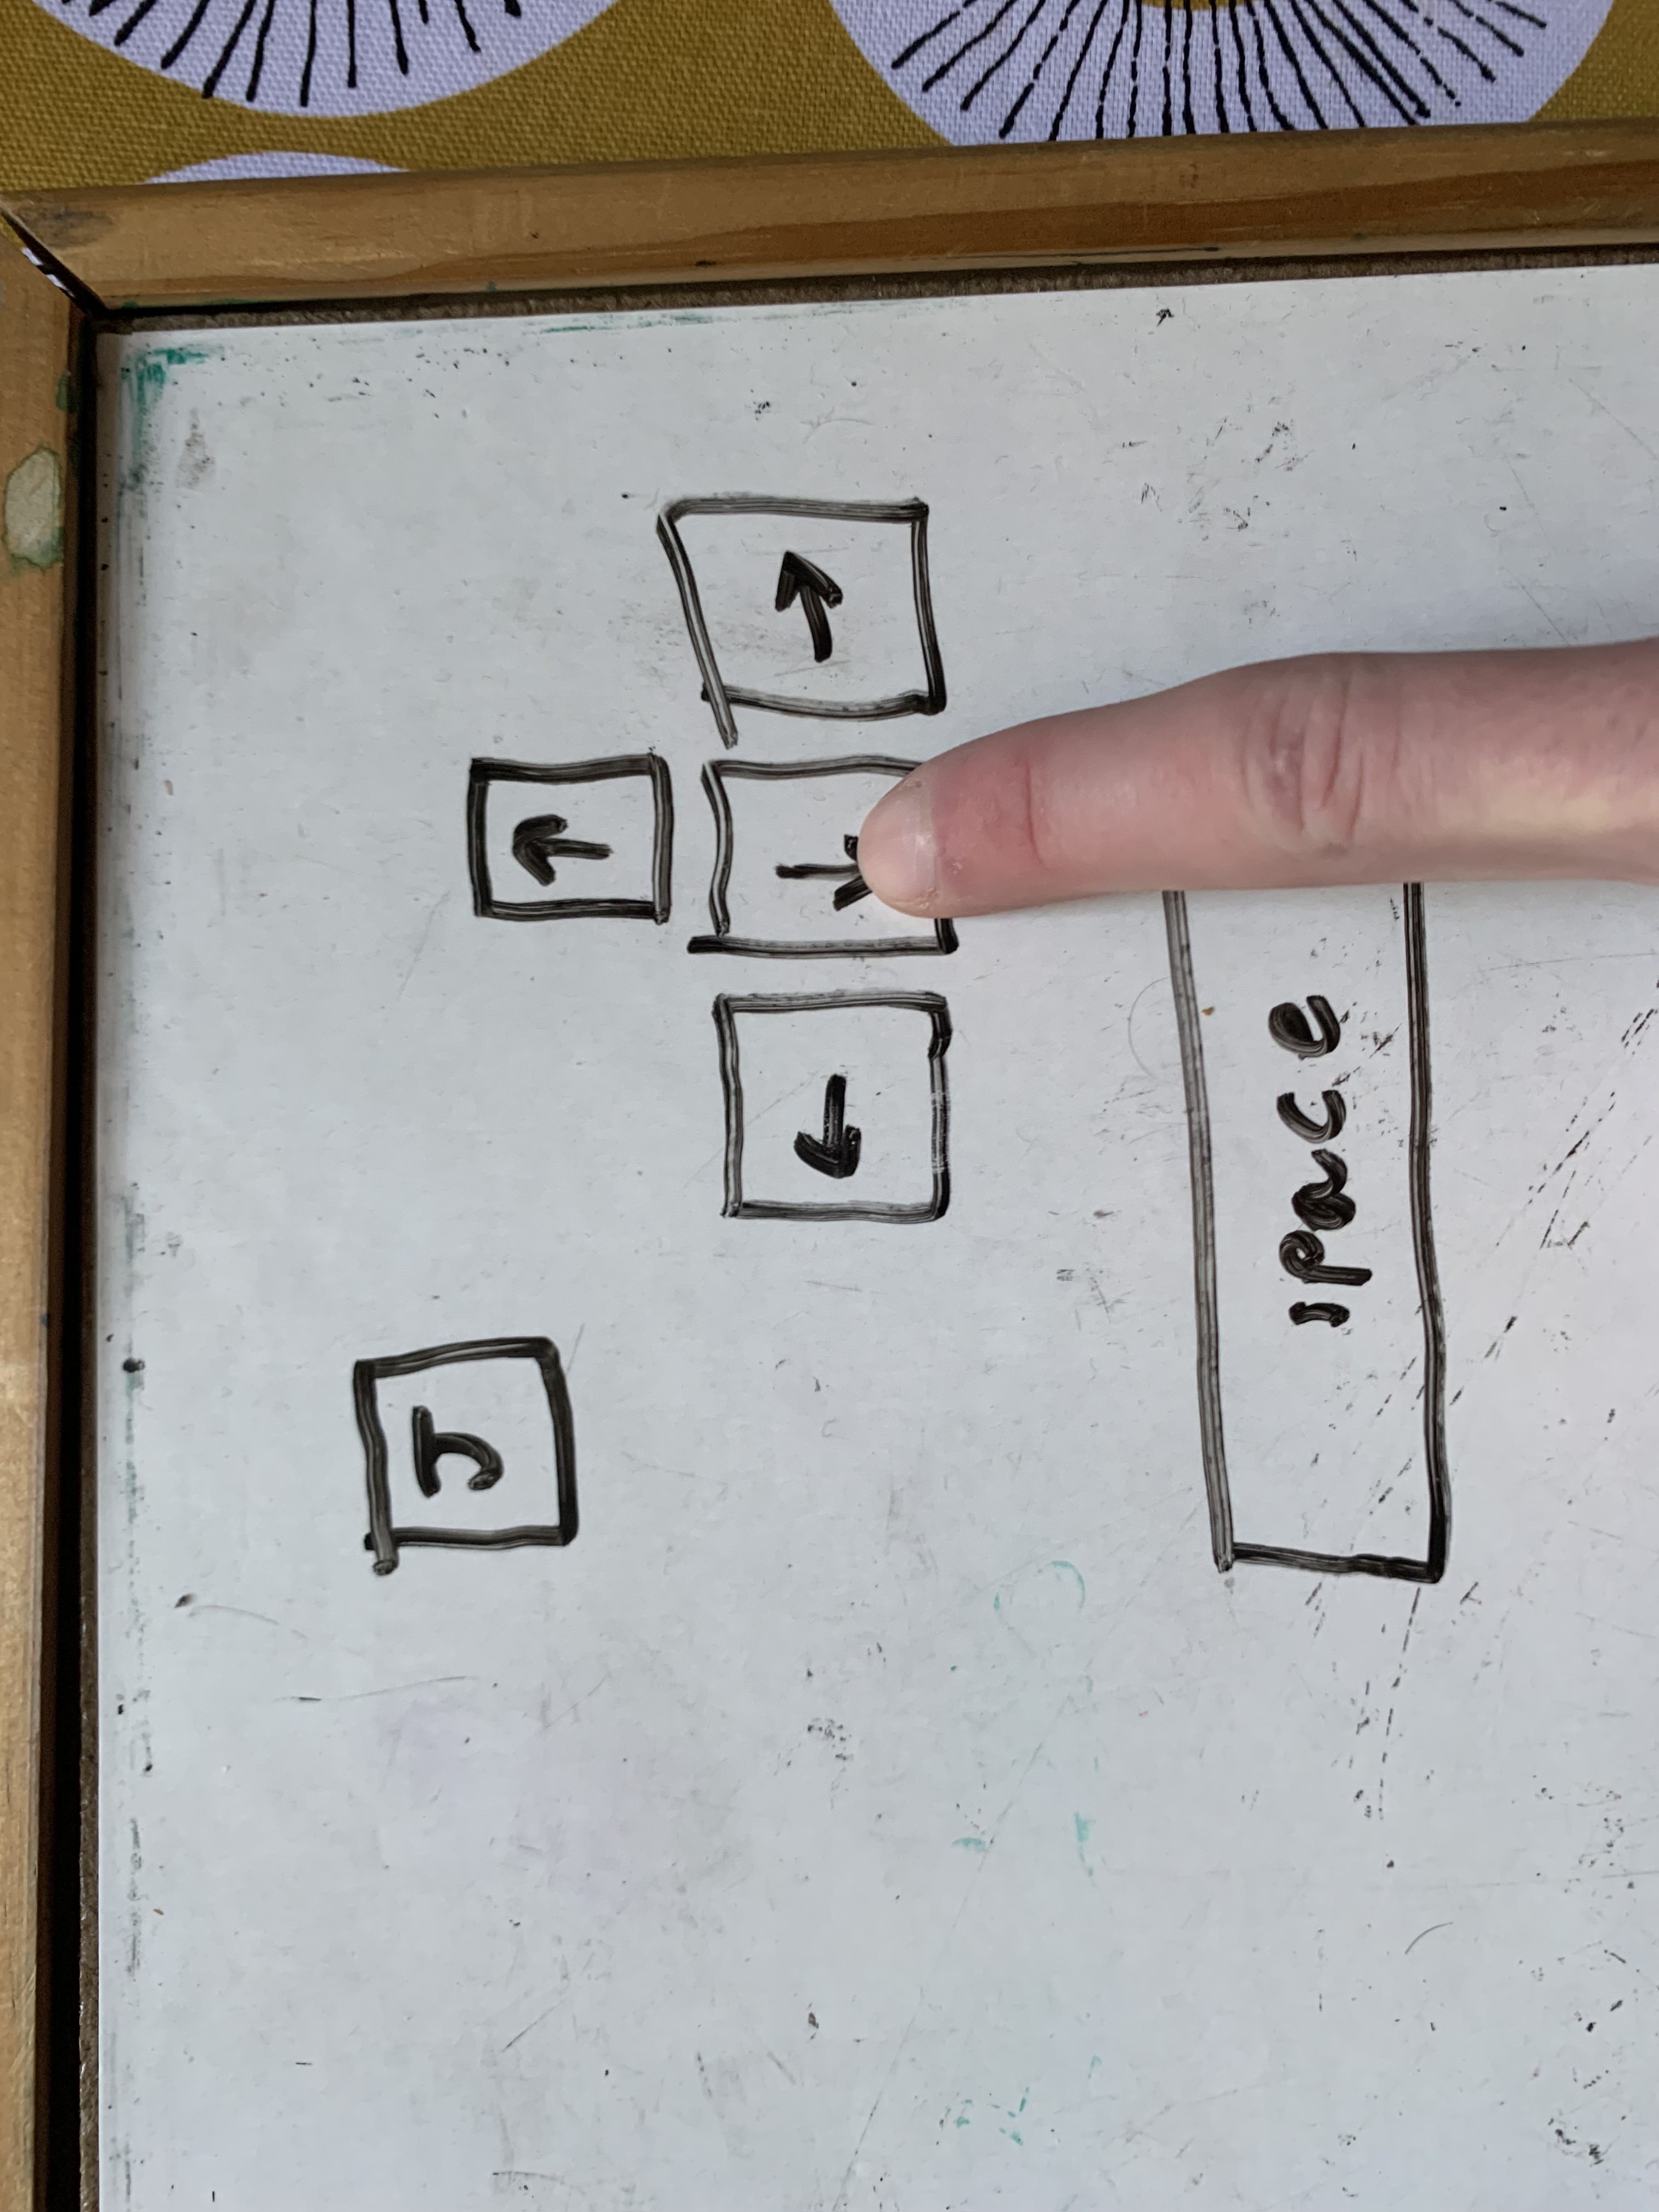 J ↑
← ↓ →
space